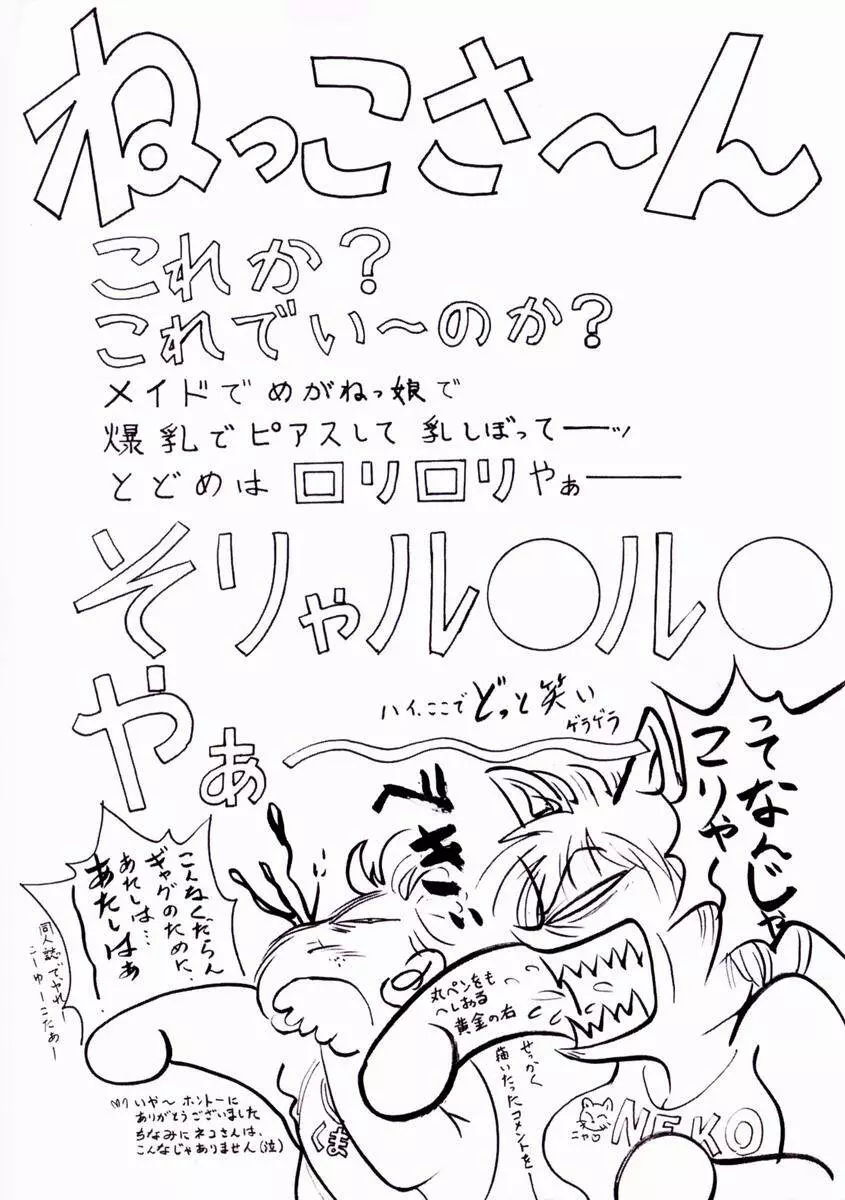 ねっこさ〜ん
これか?
これでい〜のか?
メイドでめがねっ娘で
爆乳でピアスして乳しぼってーッ
とどめはロリロリやぁ――
そりゃル○ル○
やぁ
ハイ、ここでどっと笑い
ゲラゲラ
ってなんじゃ
こりゃ〜
べきぃ
こんなくだらん
ギャグのために、
あたしは…
あたしはぁ
同人誌で、やれ
こーゆーこたぁー
丸ペンをも
へしおる
黄金の右
せっかく
描いたったコメントを―
いや〜 ホントーに
ありがとうございました
ちなみにネコさんは、
こんなじゃありません(泣)
くま
ニャ♡
NEKO